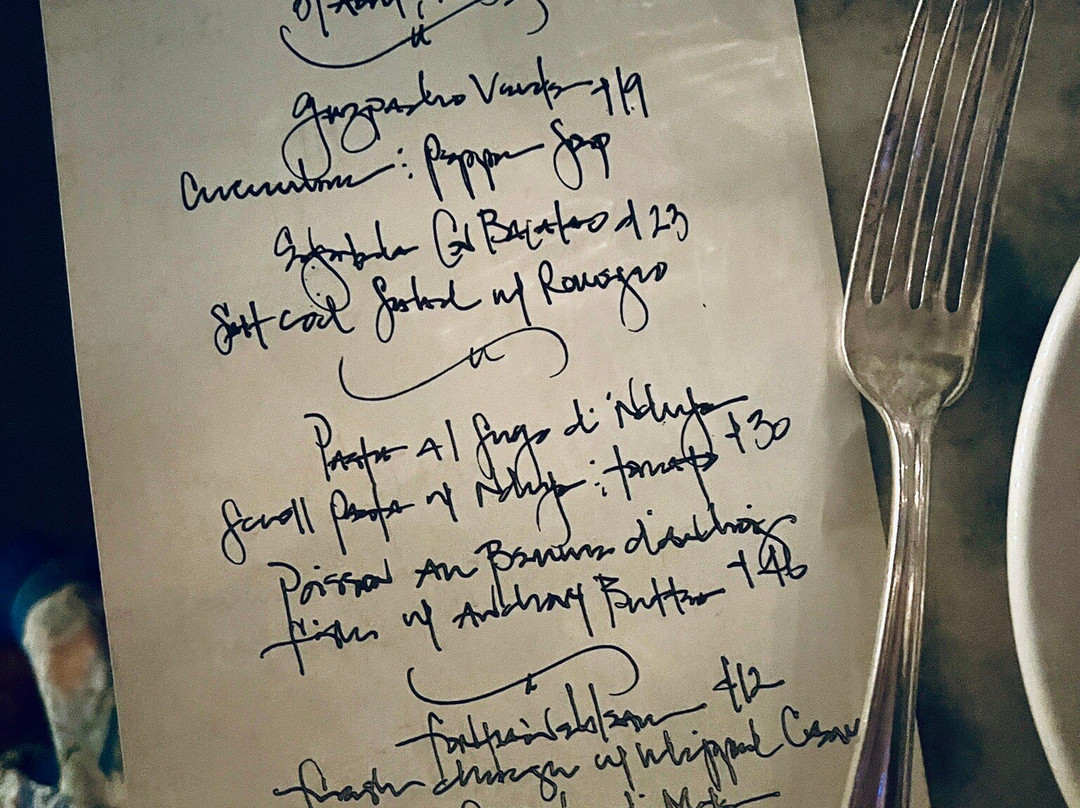 Gazpacho Verde +19
Cucumber : Pepper Soup
Esqueixada Con Bacalao +23
Salt cod Salad w/ Romesco
Pasta Al Sugo di 'Nduja
Scroll Pasta w/ Nduja : tomato +30
Poisson Au Beurre d'anchois
fish w/ Anchovy Butter +46
Fontainebleau +12
fresh w/ Whipped Cream
di